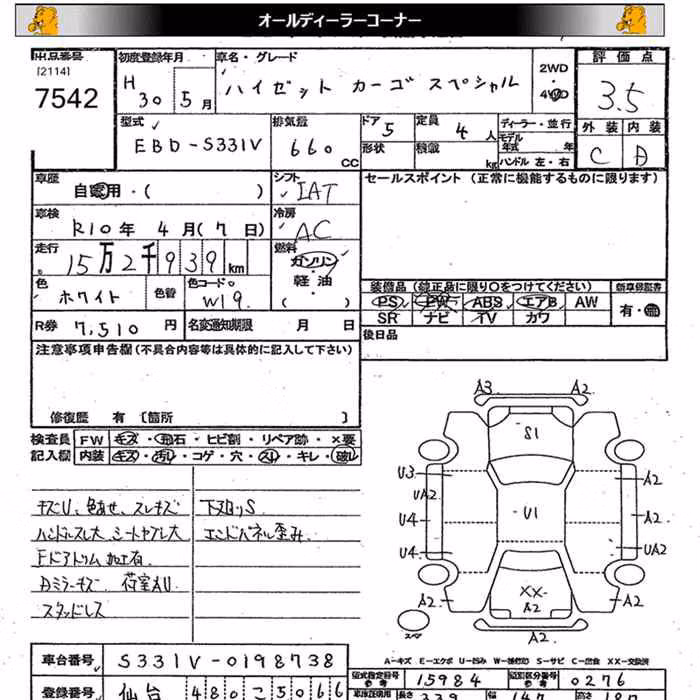 オールディーラーコーナー
出品番号
[2114]
7542
初度登録年月
H 30 年 5 月
車名・グレード
ハイゼット カーゴ スペシャル
2WD・4WD
評価点
3.5
型式
EBD-S331V
排気量
660 CC
ドア 5
形状
定員 4 人
積載 kg
ディーラー・並行
モデル年式 年
ハンドル 左・右
外装 内装
C D
車歴
自家用・( )
シフト
IAT
セールスポイント (正常に機能するものに限ります)
車検
R10年 4月(7日)
冷房
AC
走行
15万2千939km
燃料
ガソリン
軽油
( )
色
ホワイト
色替
色コードNo.
W19
装備品 (純正品に限り〇をつけてください)
新車保証書
PS PW ABS エアB AW
有・無
SR ナビ TV カワ
R券 7,510 円
名変通知期限 月 日
後日品
注意事項申告欄(不具合内容等は具体的に記入して下さい)
修復歴 有 〔箇所 〕
検査員 FW キズ・飛石・ヒビ割・リペア跡・×要
記入欄 内装 キズ・汚れ・コゲ・穴・スレ・キレ・破れ
キズU、色あせ、スレキズ
ハンドルスレ大 シートヤブレ大
Fドアトリム 加工有
Dミラーキズ 荷室大U
スタッドレス
下廻りS
エンドパネル歪み
A3 A2
S1
U3
UA2
A2
U4 U1 A2
U4 UA2
XX
A2
A2 A2
スペア
A2
A-キズ E-エクボ U-凹み W-補修(跡) S-サビ C-腐食 XX-交換済
車台番号
S331V-0198738
登録番号
仙台 480 こ 5066
型式指定番号 参考
15984
類別区分番号 参考
0276